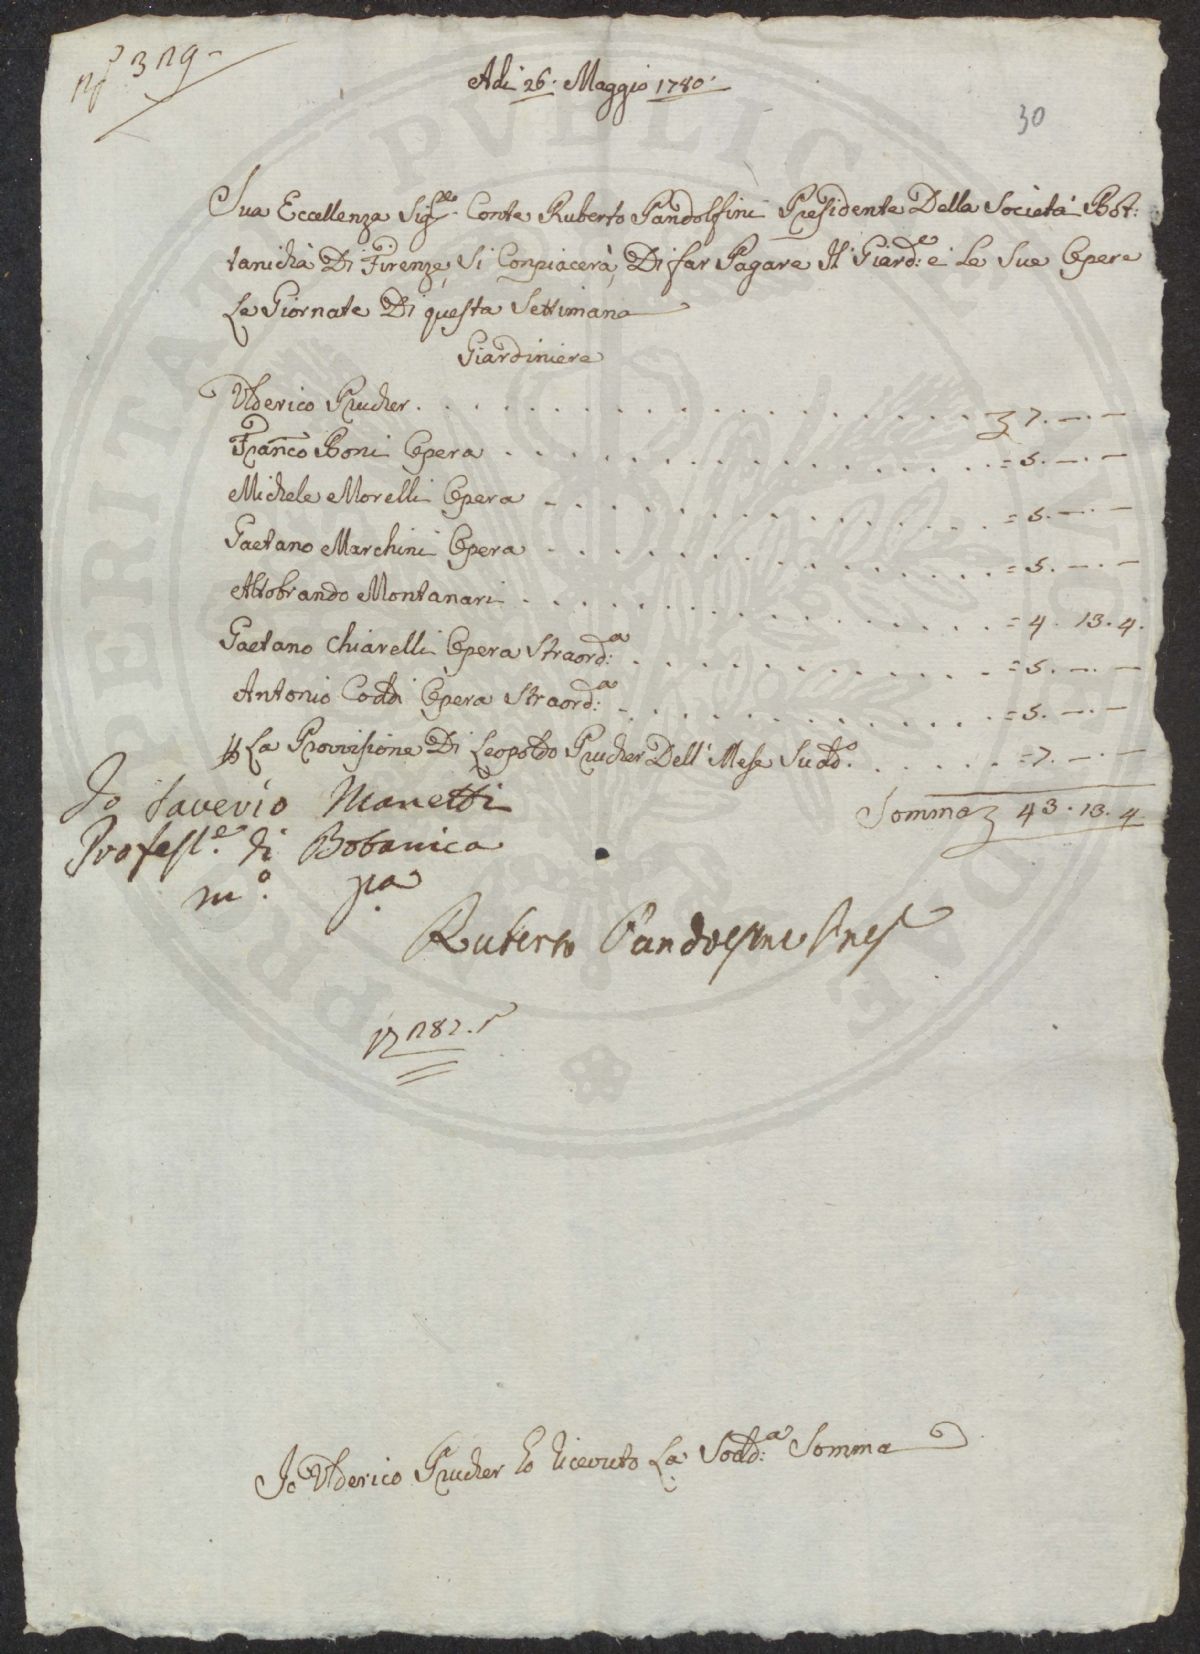 Adi 26. Maggio 1780.
30
Sua Eccellenza Sig.re Conte Ruberto Pandolfini Presidente Della Società Bot:
tanicha Di Firenze, Si Conpiacerà, Di far Pagare Il Giard.e e Le Sue Opere
Le Giornate Di questa Settimana
Giardiniere
Ulderico Prucher . . . 7. —. —
Franco Boni Opera . . . = 5. —. —
Michele Morelli Opera . . . = 5. —. —
Gaetano Marchini Opera . . . = 5. —. —
Altobrando Montanari . . . = 4. 13. 4.
Gaetano Chiarelli Opera Straord:a . . . = 5. —. —
Antonio Coddi Opera Straord:a . . . = 5. —. —
La Provvisione Di Leopoldo Prucher Dell' Mese Sudd.o . . . = 7. —. —
Somma 43. 13. 4.
Io Saverio Manetti
Profess.e di Botanica
m.o p.a
Ruberto Pandolfini Pres
Io Ulderico Prucher ho ricevuto La Sodd:a Somma
PROSPERITATI PVBLICAE